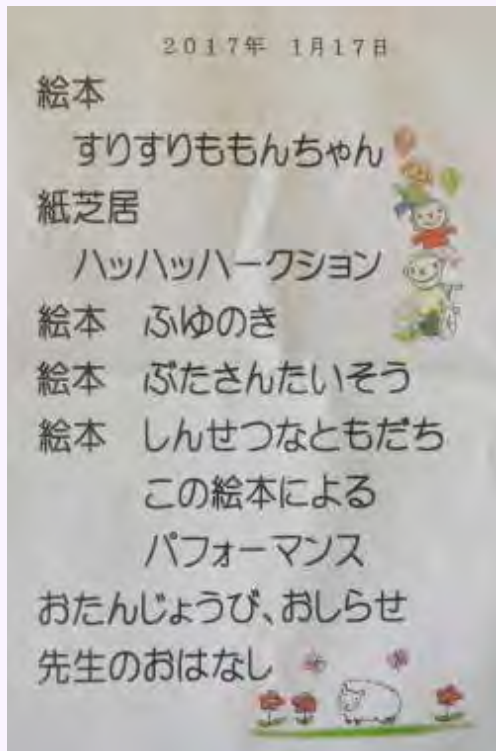 2017年 1月17日
絵本
すりすりももんちゃん
紙芝居
ハッハッハークション
絵本 ふゆのき
絵本 ぶたさんたいそう
絵本 しんせつなともだち
この絵本による
パフォーマンス
おたんじょうび、おしらせ
先生のおはなし